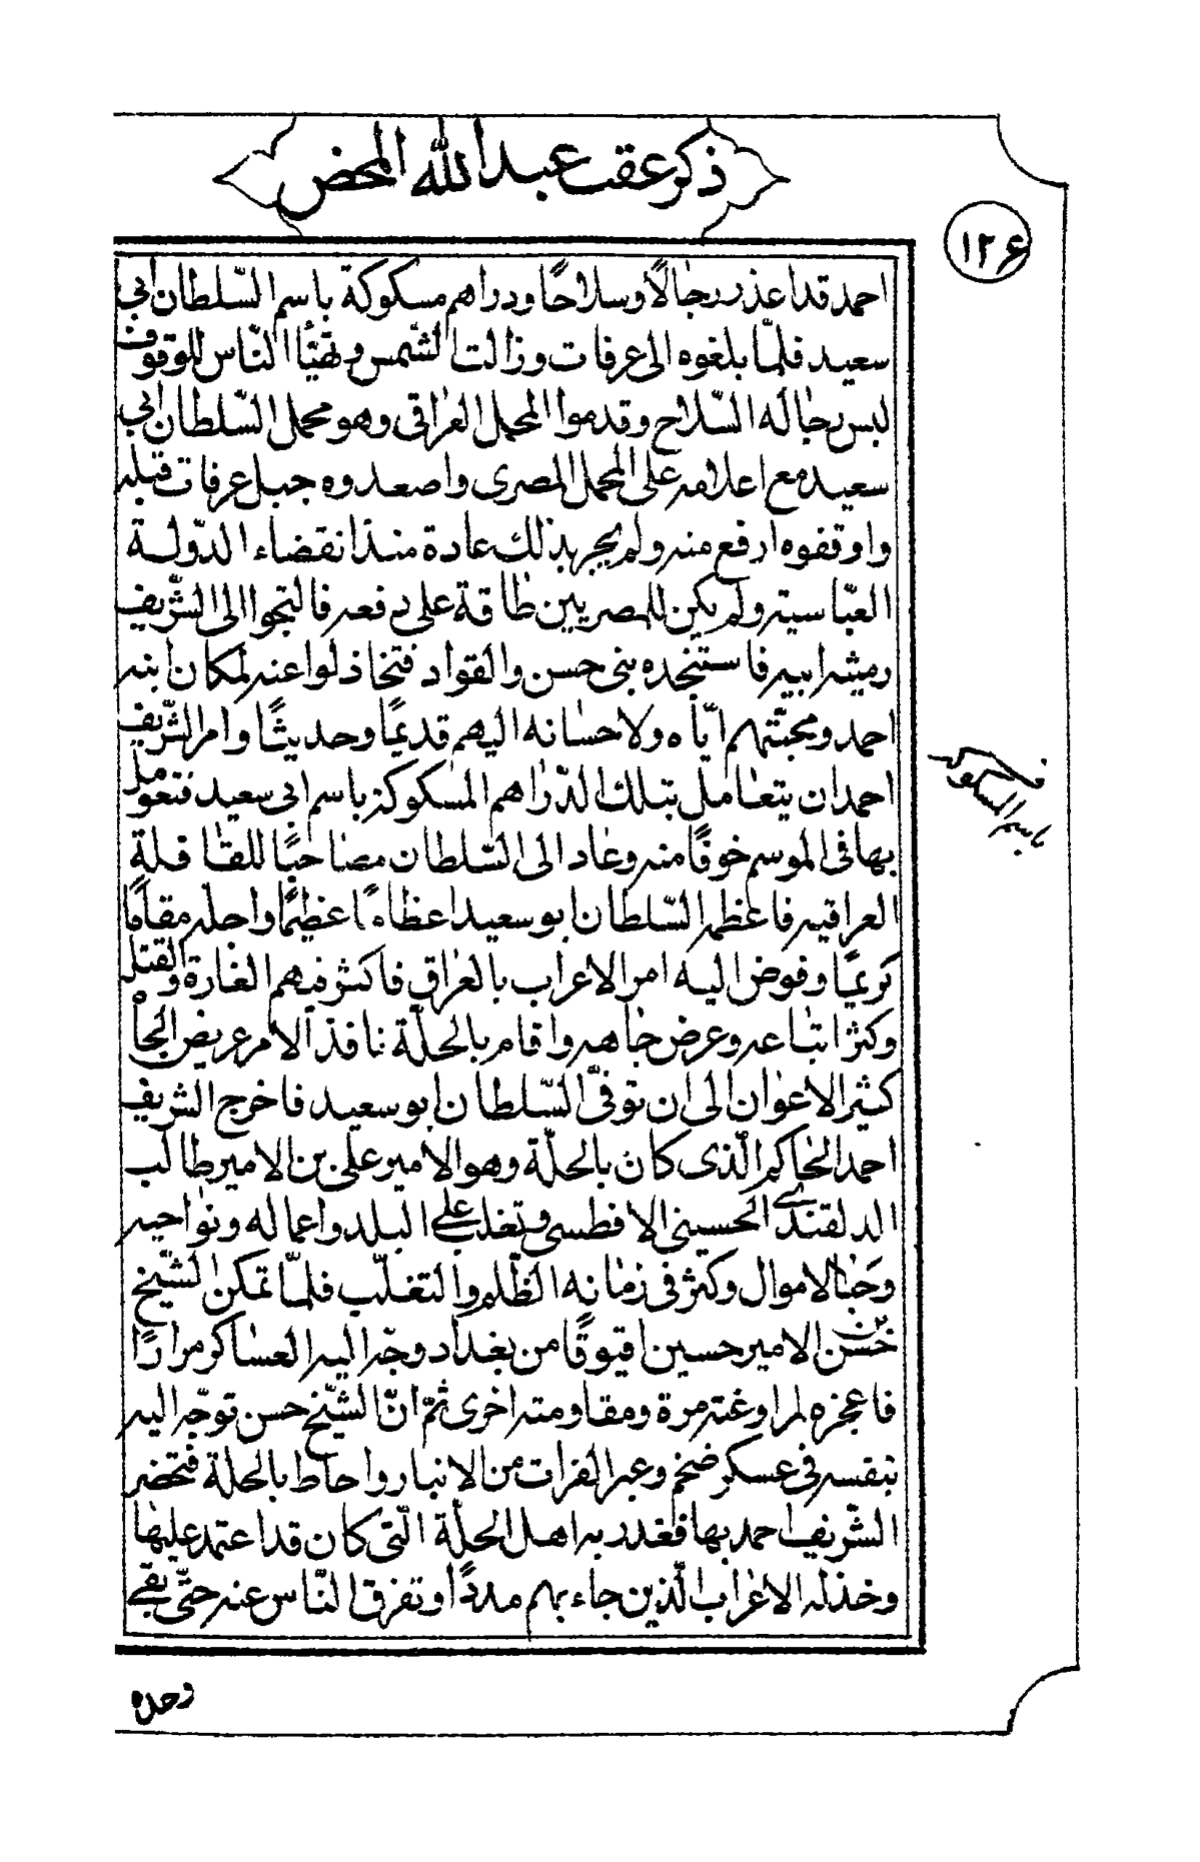 ذكر عقب عبد الله المحض
١٢٤
احمد قد اعد رجالًا وسلاحًا ودراهم مسكوكة باسم السّلطان ابي
سعيد فلمّا بلغوه الى عرفات وزالت الشّمس وتهيّأ النّاس للوقوف
لبس رجاله السّلاح وقدموا المحمل العراقى وهو محمل السّلطان ابي
سعيد مع اعلامه على المحمل المصرى واصعدوه جبل عرفات قبله
واوقفوه ارفع منه ولم يجر بذلك عادة منذ انقضاء الدّولة
العبّاسية ولم يكن للمصريين طاقة على دفعه فالتجوا الى الشّريف
رميثه ابيه فاستنجده بنى حسن والقواد فتخاذلوا عنه لمكان ابنه
احمد ومحبّتهم ايّاه ولاحسانه اليهم قديمًا وحديثًا وامر الشّريف
احمد ان يتعامل بتلك الدّراهم المسكوكة باسم ابى سعيد فتعومل
بها فى الموسم خوفًا منه وعاد الى السّلطان مصاحبًا للقافلة
العراقيه فاعظمه السّلطان ابو سعيد اعظاءًا عظيمًا واحله مقامًا
كريمًا وفوض اليه امر الاعراب بالعراق فاكثر فيهم الغارة والقتل
وكثر اتباعه وعرض جاهه واقام بالحلّة نافذ الامر عريض الجاه
كثير الاعوان الى ان توفّى السّلطان ابو سعيد فاخرج الشريف
احمد الحاكم الّذى كان بالحلّة وهو الامير على بن الامير طالب
الدلقندى الحسينى الافطسى وتغلب على البلد واعماله ونواحيه
وجبا الاموال وكثر فى زمانه الظّلم والتغلّب فلمّا تمكن الشّيخ
حسن بن الامير حسين اقبوقا من بغداد وجّه اليه العساكر مرارًا
فاعجزه لمراوغته مرة ومقاومته اخرى ثمّ انّ الشّيخ حسن توجّه اليه
بنفسه فى عسكر ضخم وعبر الفرات من الانبار واحاط بالحلة فتحضر
الشّريف احمد بها فغدر به اهل الحلّة الّتى كان قد اعتمد عليها
وخذله الاعراب الّذين جاء بهم مددًا وتفرق النّاس عنه حتّى بقى
وحده
باسم المسكوكة